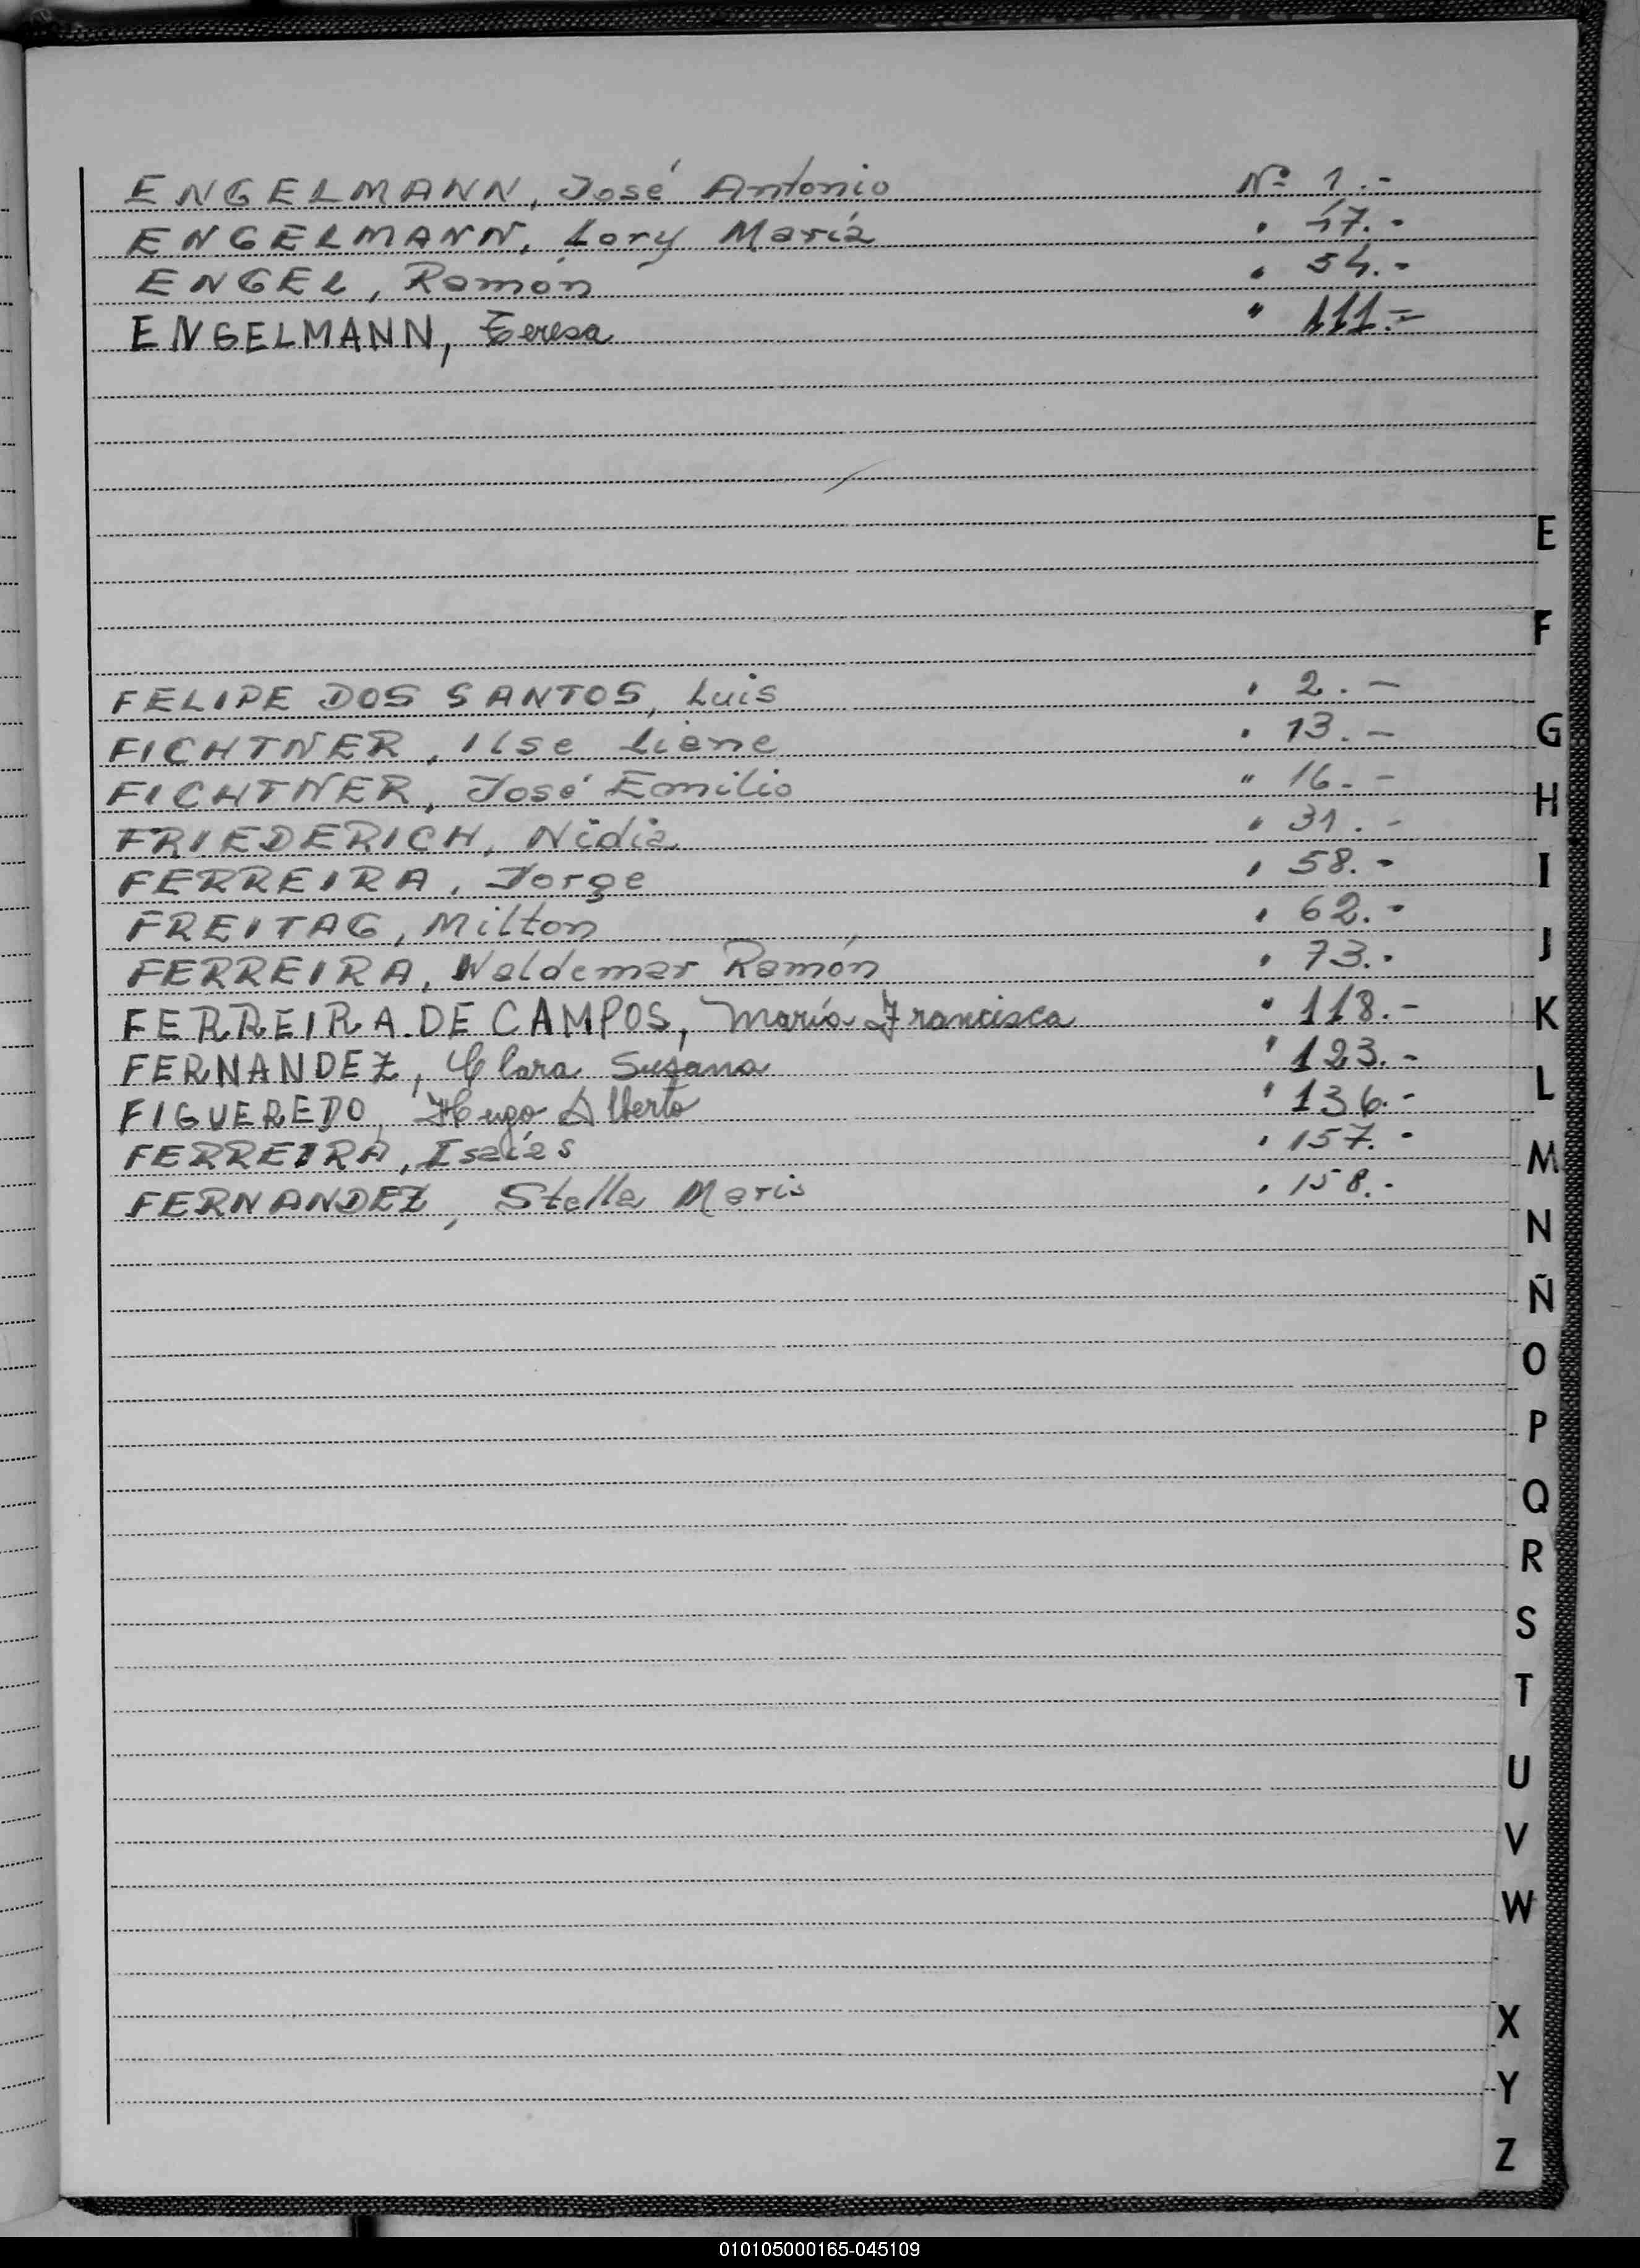 ENGELMANN, José Antonio Nº 1.-
ENGELMANN, Lory María " 47.-
ENGEL, Ramón " 54.-
ENGELMANN, Teresa " 111.-
E
F
FELIPE DOS SANTOS, Luis " 2.-
FICHTNER, Ilse Liane " 13.-
G
FICHTNER, José Emilio " 16.-
H
FRIEDERICH, Nidia " 31.-
FERREIRA, Jorge " 58.-
I
FREITAG, Milton " 62.-
J
FERREIRA, Waldemar Ramón " 73.-
FERREIRA DE CAMPOS, María Francisca " 118.-
K
FERNANDEZ, Clara Susana " 123.-
L
FIGUEREDO, Hugo Alberto " 136.-
FERREIRA, Isaías " 157.-
M
FERNANDEZ, Stella Maris " 158.-
N
Ñ
O
P
Q
R
S
T
U
V
W
X
Y
Z
010105000165-045109